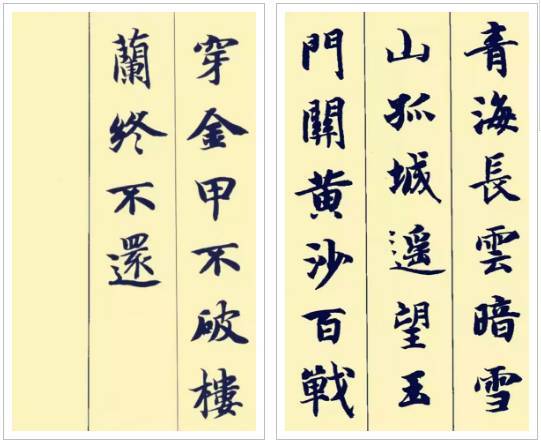 青海長雲暗雪
山孤城遥望玉
門關黄沙百戰
穿金甲不破樓
蘭終不還